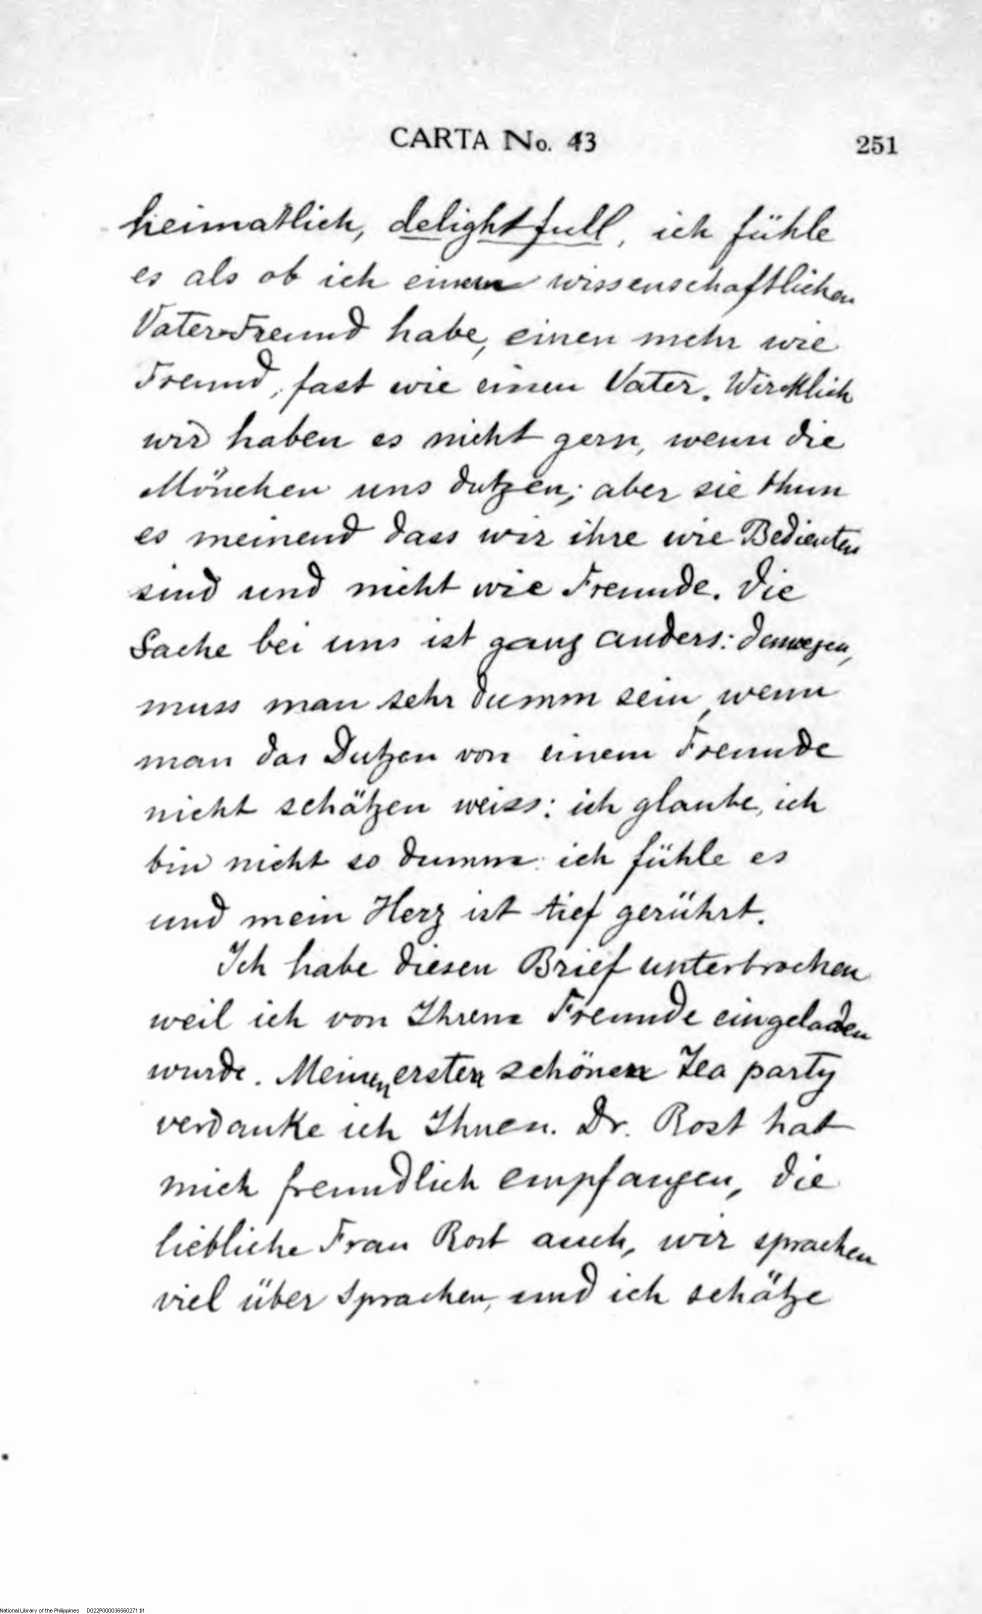 CARTA No. 43
251
heimatlich, delightfull, ich fühle
es als ob ich einen wissenschaftlichen
Vater-Freund habe, einen mehr wie
Freund, fast wie einen Vater. Wircklich
wir haben es nicht gern, wenn die
Mönchen uns dutzen; aber sie thun
es meinend dass wir ihre wie Bedienten
sind und nicht wie Freunde. Die
Sache bei uns ist ganz anders: deswegen,
muss man sehr dumm sein, wenn
man das Dutzen von einem Freunde
nicht schätzen weiss: ich glaube, ich
bin nicht so dumm: ich fühle es
und mein Herz ist tief gerührt.
Ich habe diesen Brief unterbrochen
weil ich von Ihrem Freunde eingeladen
wurde. Meinen ersten schönen Tea party
verdanke ich Ihnen. Dr. Rost hat
mich freundlich empfangen, die
liebliche Frau Rost auch, wir sprachen
viel über Sprachen, und ich schätze
National Library of the Philippines